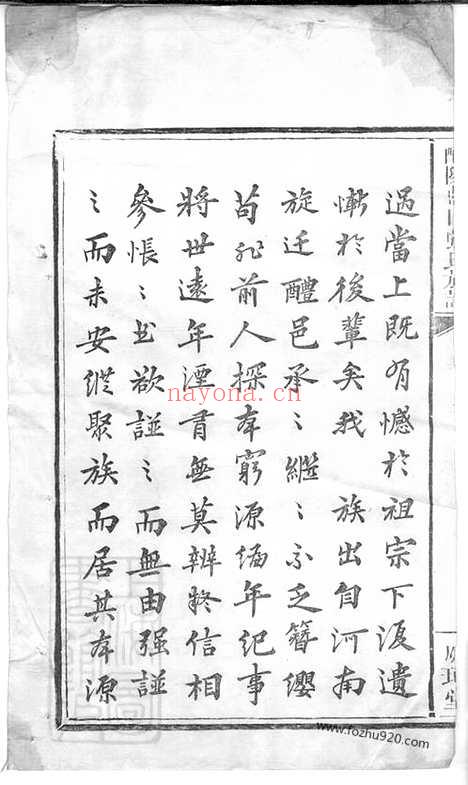 過當上既有憾於祖宗下復遺
慚於後輩矣我　族出自河南
旋迁醴邑承〻繼〻不乏簪纓
苟非前人探本窮源编年纪事
將世遠年湮胥無莫辨終信相
參悵〻世欲諩〻而無由强諩
〻而未安縱聚族而居其本源
nayona.cn
www.fozhu920.com